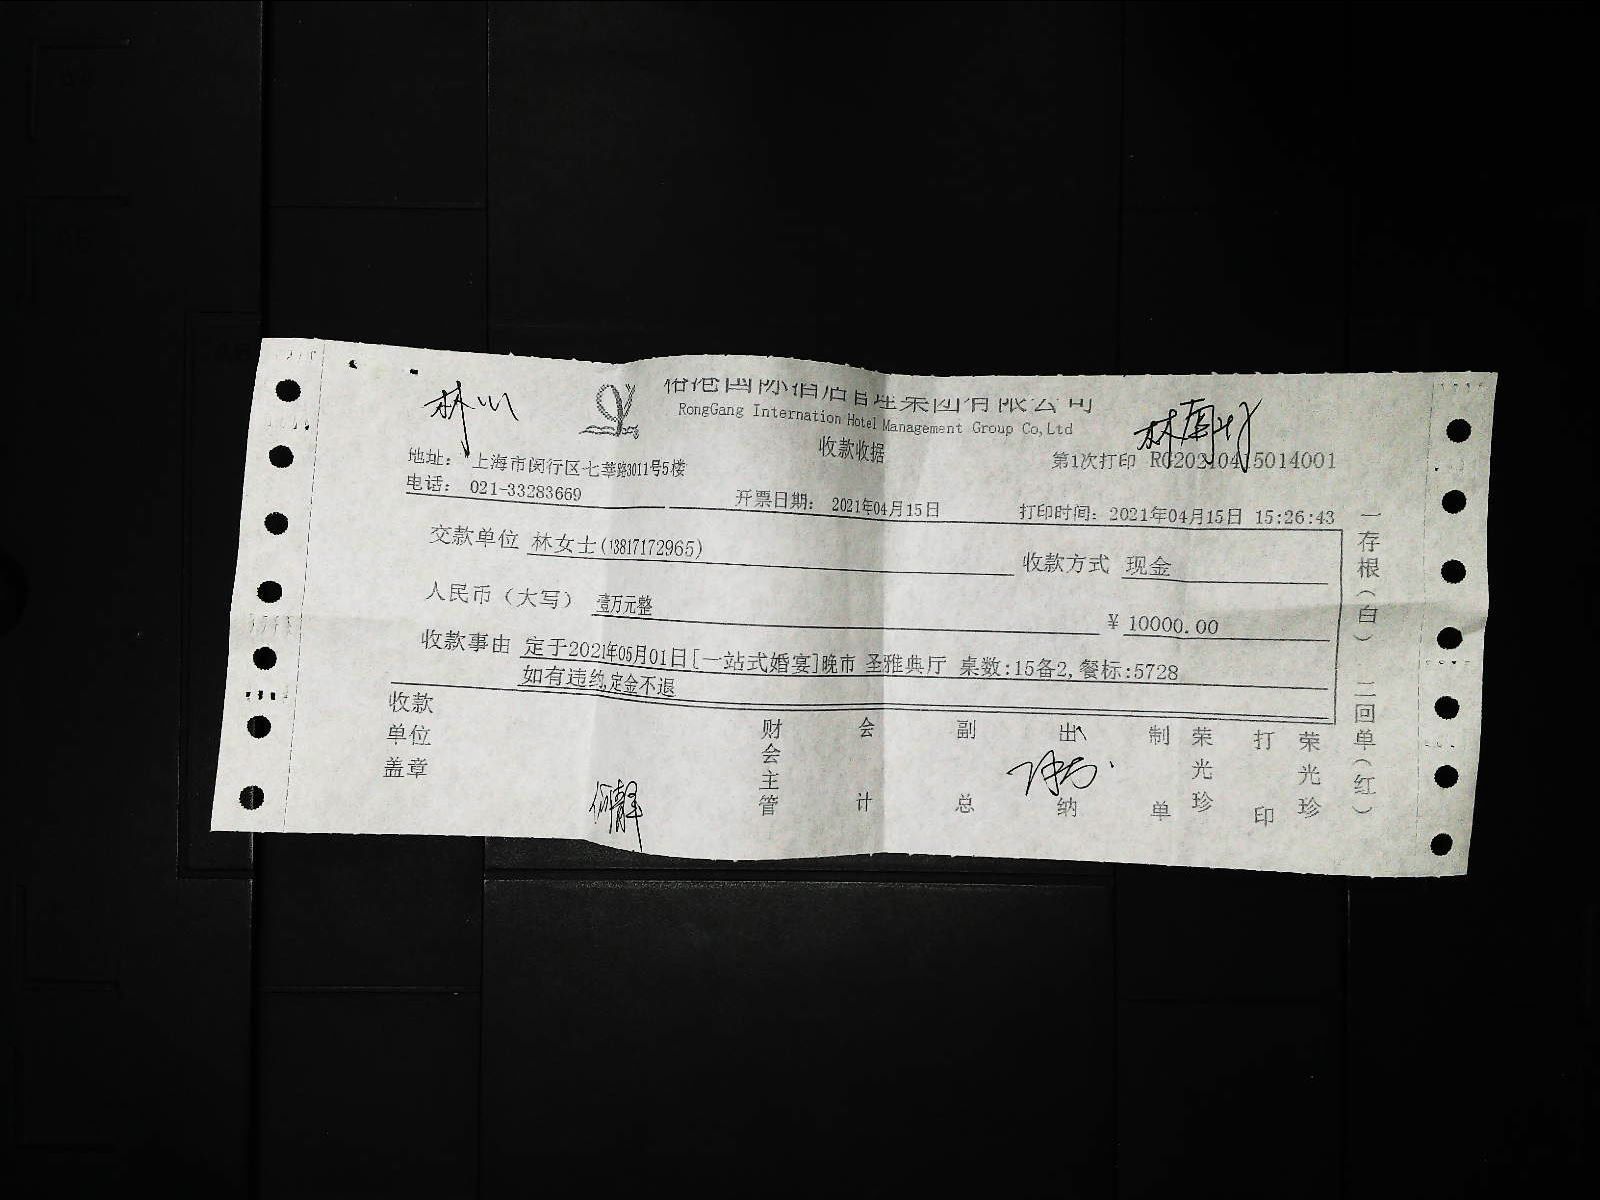 国际酒店管理集团有限公司
RongGang Internation Hotel Management Group Co,Ltd
收款收据
地址: 上海市闵行区七莘路3011号5楼
第1次打印 RG20210415014001
电话: 021-33283669
开票日期: 2021年04月15日
打印时间: 2021年04月15日 15:26:43
交款单位 林女士(13817172965)
收款方式 现金
人民币(大写) 壹万元整
¥ 10000.00
收款事由 定于2021年05月01日[一站式婚宴]晚市 圣雅典厅 桌数:15备2,餐标:5728
如有违约,定金不退
收款单位盖章
财会主管
会计
副总
出纳
制单 荣光珍
打印 荣光珍
一存根(白) 二回单(红)